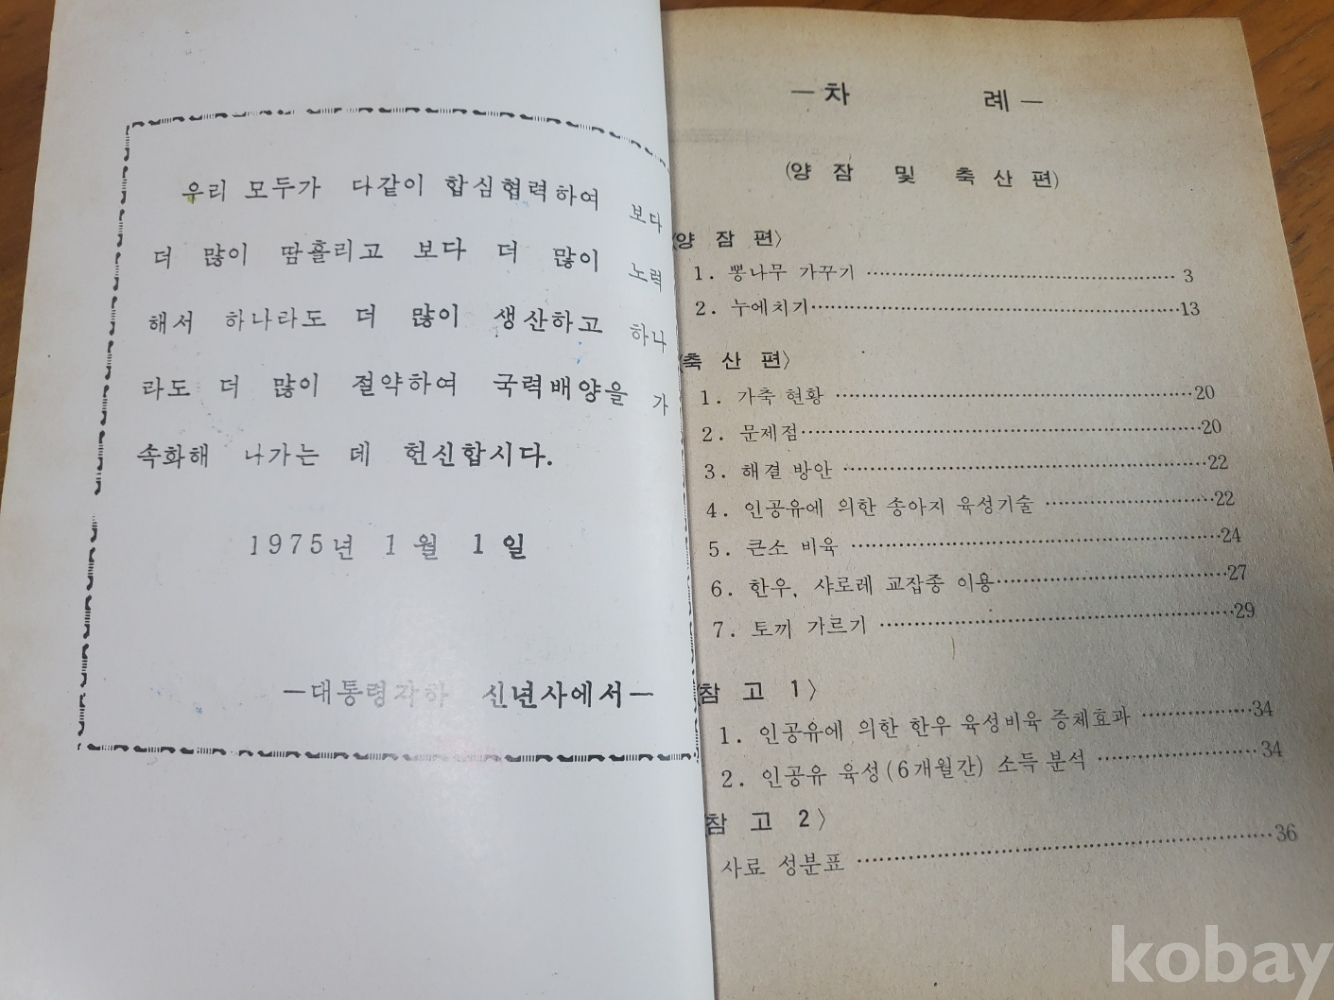 우리 모두가 다같이 합심협력하여 보다
더 많이 땀흘리고 보다 더 많이 노력
해서 하나라도 더 많이 생산하고 하나
라도 더 많이 절약하여 국력배양을 가
속화해 나가는 데 헌신합시다.
1975년 1월 1일
—대통령각하 신년사에서—
—차 례—
(양 잠 및 축 산 편)
〈양 잠 편〉
1. 뽕나무 가꾸기 ……………………………… 3
2. 누에치기……………………………………13
〈축 산 편〉
1. 가축 현황 ……………………………………20
2. 문제점…………………………………………20
3. 해결 방안 ……………………………………22
4. 인공유에 의한 송아지 육성기술 ………………22
5. 큰소 비육 ……………………………………24
6. 한우, 샤로레 교잡종 이용………………………27
7. 토끼 가르기 ……………………………………29
〈참 고 1〉
1. 인공유에 의한 한우 육성비육 증체효과 …………34
2. 인공유 육성(6개월간) 소득 분석 ………………34
〈참 고 2〉
사료 성분표 …………………………………………36
kobay